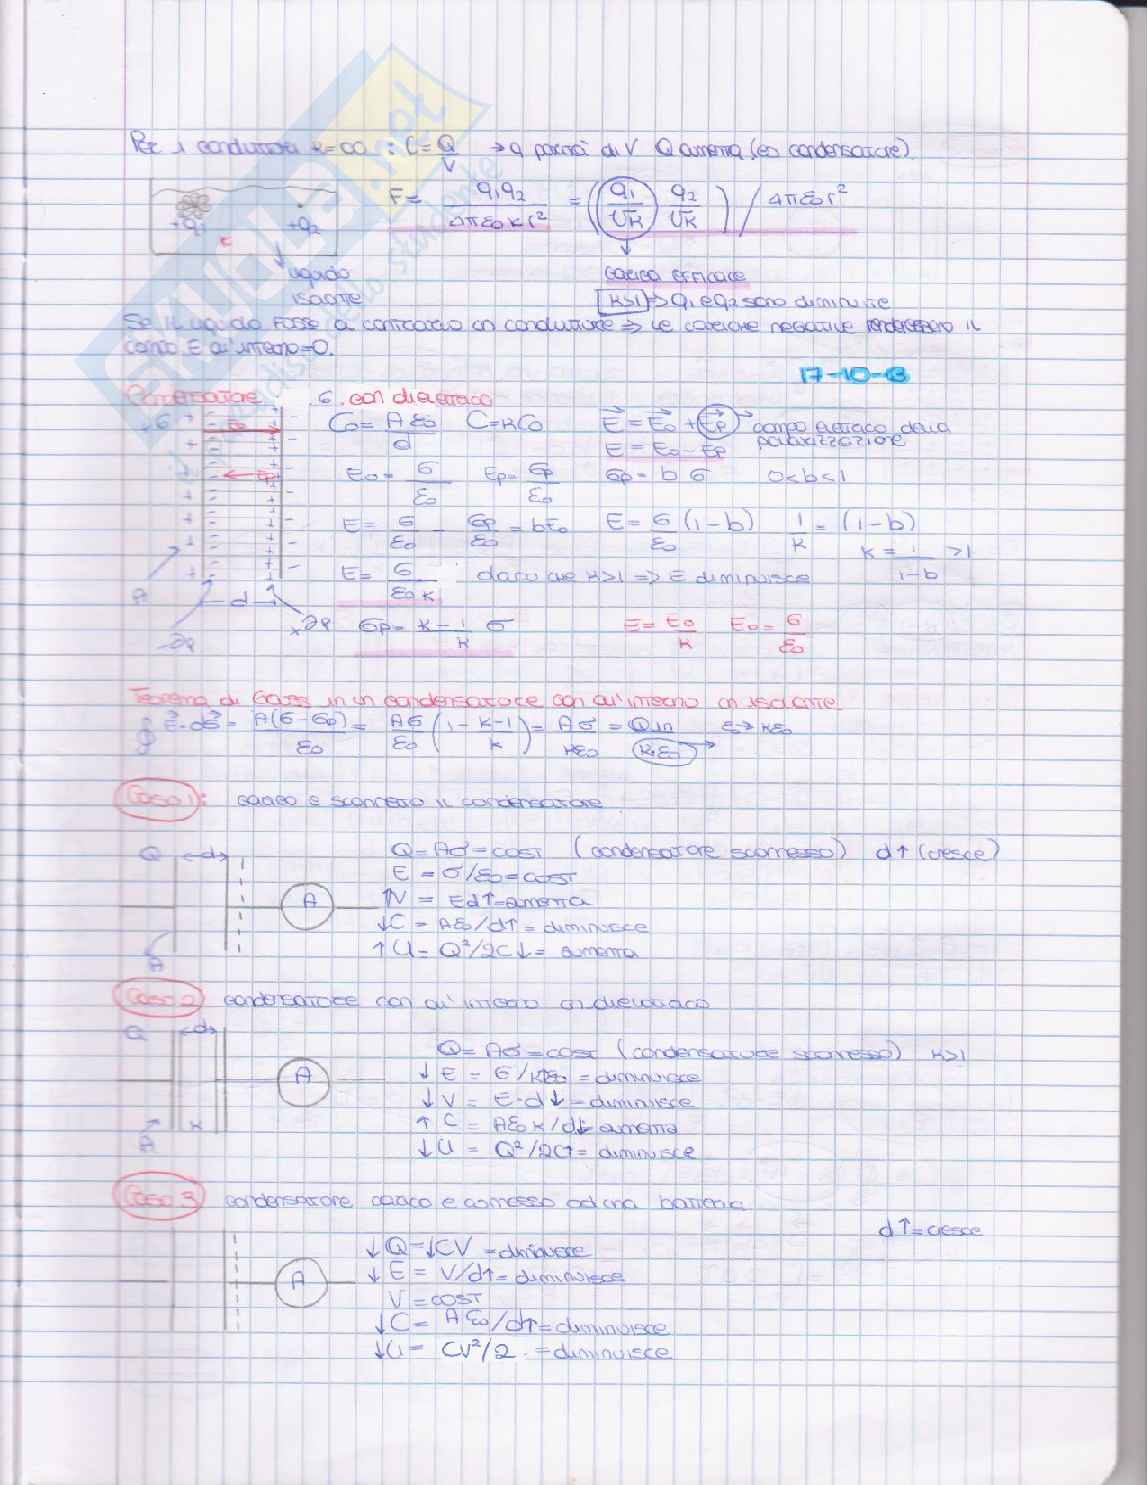 Per i conduttori k=∞ : C=Q/V → a parità di V Q aumenta (es condensatore)
F= q1q2/4πε0kr² = (q1/√k q2/√k) / 4πε0r²
+q1 +q2
liquido isolante
carica efficace
k>1 → q1 e q2 sono diminuite
Se il liquido fosse al contrario un conduttore => le cariche negative renderebbero il
campo E all'interno=0.
17-10-13
Condensatore con dielettrico
C0= Aε0/d C=kC0 E=E0+Ep campo elettrico della polarizzazione
E=E0-Ep
E0= σ/ε0 Ep= σp/ε0 σp= b σ 0<b<1
E= σ/ε0 - σp/ε0 = bE0 E= σ/ε0 (1-b) 1/k = (1-b) k= 1/1-b >1
E= σ/ε0k dato che k>1 => E diminuisce
A d
σp= k-1/k σ E= E0/k E0= σ/ε0
Teorema di Gauss in un condensatore con all'interno un isolante
∮ E·dS = A(σ-σp)/ε0 = Aσ/ε0 (1 - k-1/k) = Aσ/kε0 = Qin/k·ε0 ε→kε0
Caso 1: carico e sconnetto il condensatore
Q d
Q=Aσ=cost (condensatore sconnesso) d↑ (cresce)
E = σ/ε0=cost
A
↑V = Ed↑=aumenta
↓C = Aε0/d↑=diminuisce
↑U= Q²/2C↓= aumenta
A
Caso 2 condensatore con all'interno un dielettrico
Q d
Q= Aσ=cost (condensatore sconnesso) k>1
↓ E = σ/kε0 =diminuisce
A
↓ V = E·d↓=diminuisce
↑ C = Aε0k/d=aumenta
A k
↓U = Q²/2C↑= diminuisce
Caso 3 condensatore carico e connesso ad una batteria
d↑=cresce
↓Q=↓CV =diminuisce
↓E = V/d↑=diminuisce
A
V =cost
↓C= Aε0/d↑=diminuisce
↓U= CV²/2 =diminuisce